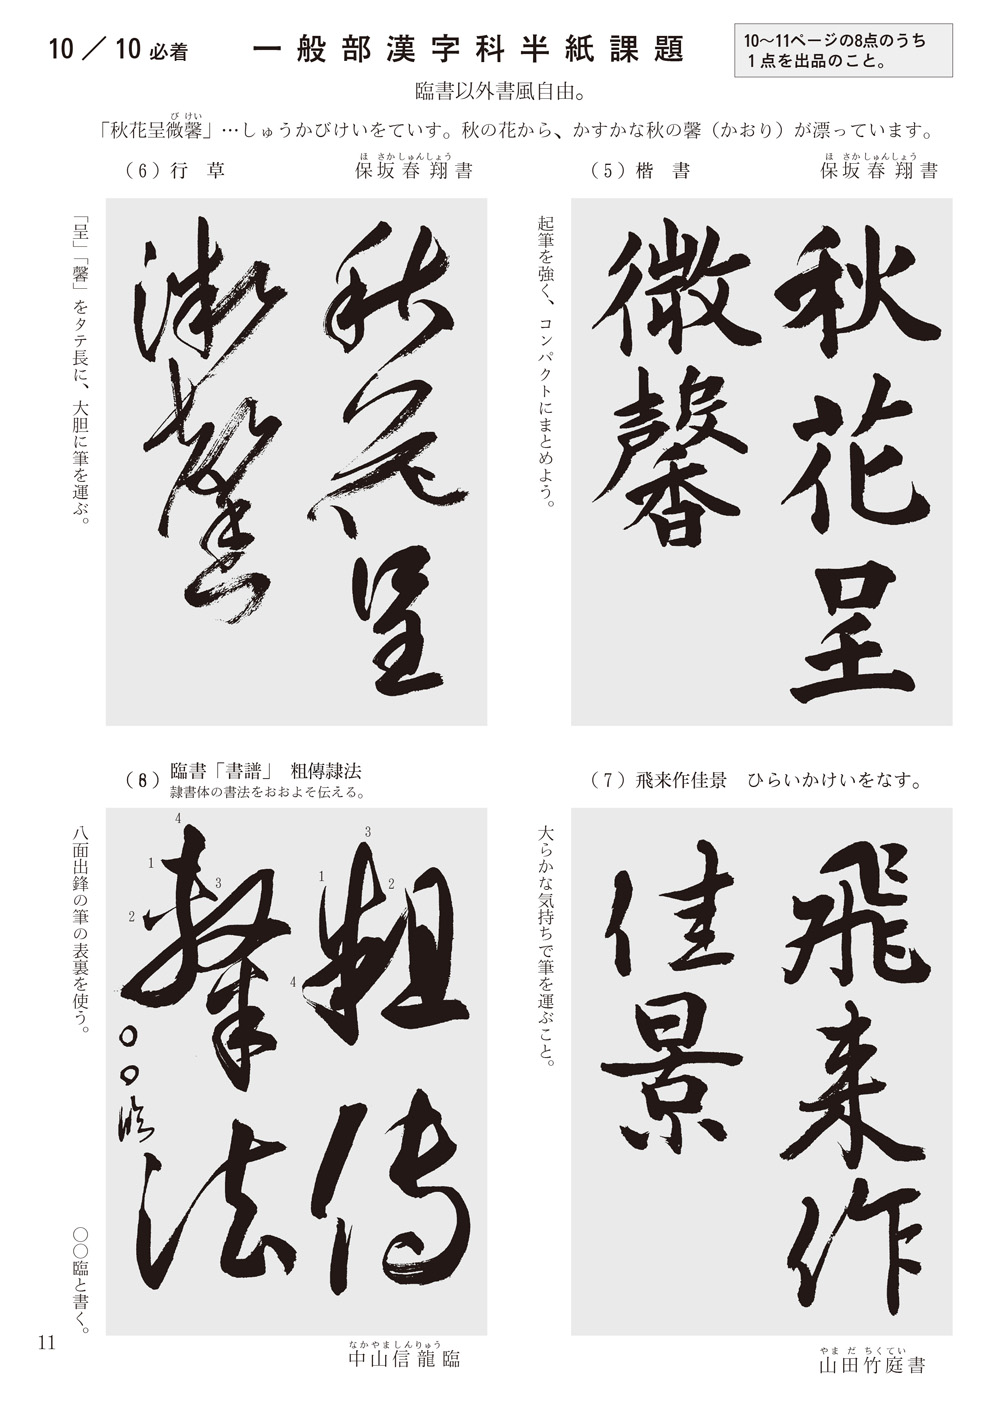 10／10必着
一般部漢字科半紙課題
10〜11ページの8点のうち
１点を出品のこと。
臨書以外書風自由。
び けい
「秋花呈微馨」…しゅうかびけいをていす。秋の花から、かすかな秋の馨（かおり）が漂っています。
（5）楷　書
ほ さか しゅんしょう
保坂春翔書
起筆を強く、コンパクトにまとめよう。
秋花呈
微馨
（6）行　草
ほ さか しゅんしょう
保坂春翔書
「呈」「馨」をタテ長に、大胆に筆を運ぶ。
秋花呈
微馨
（7）飛来作佳景　ひらいかけいをなす。
大らかな気持ちで筆を運ぶこと。
飛来作
佳景
やま だ ちくてい
山田竹庭書
（8）臨書「書譜」　粗傳隷法
隷書体の書法をおおよそ伝える。
八面出鋒の筆の表裏を使う。
〇〇臨と書く。
3
1
2
4
粗傳
4
1
3
2
隷法
〇〇臨
なかやましんりゅう
中山信龍臨
11